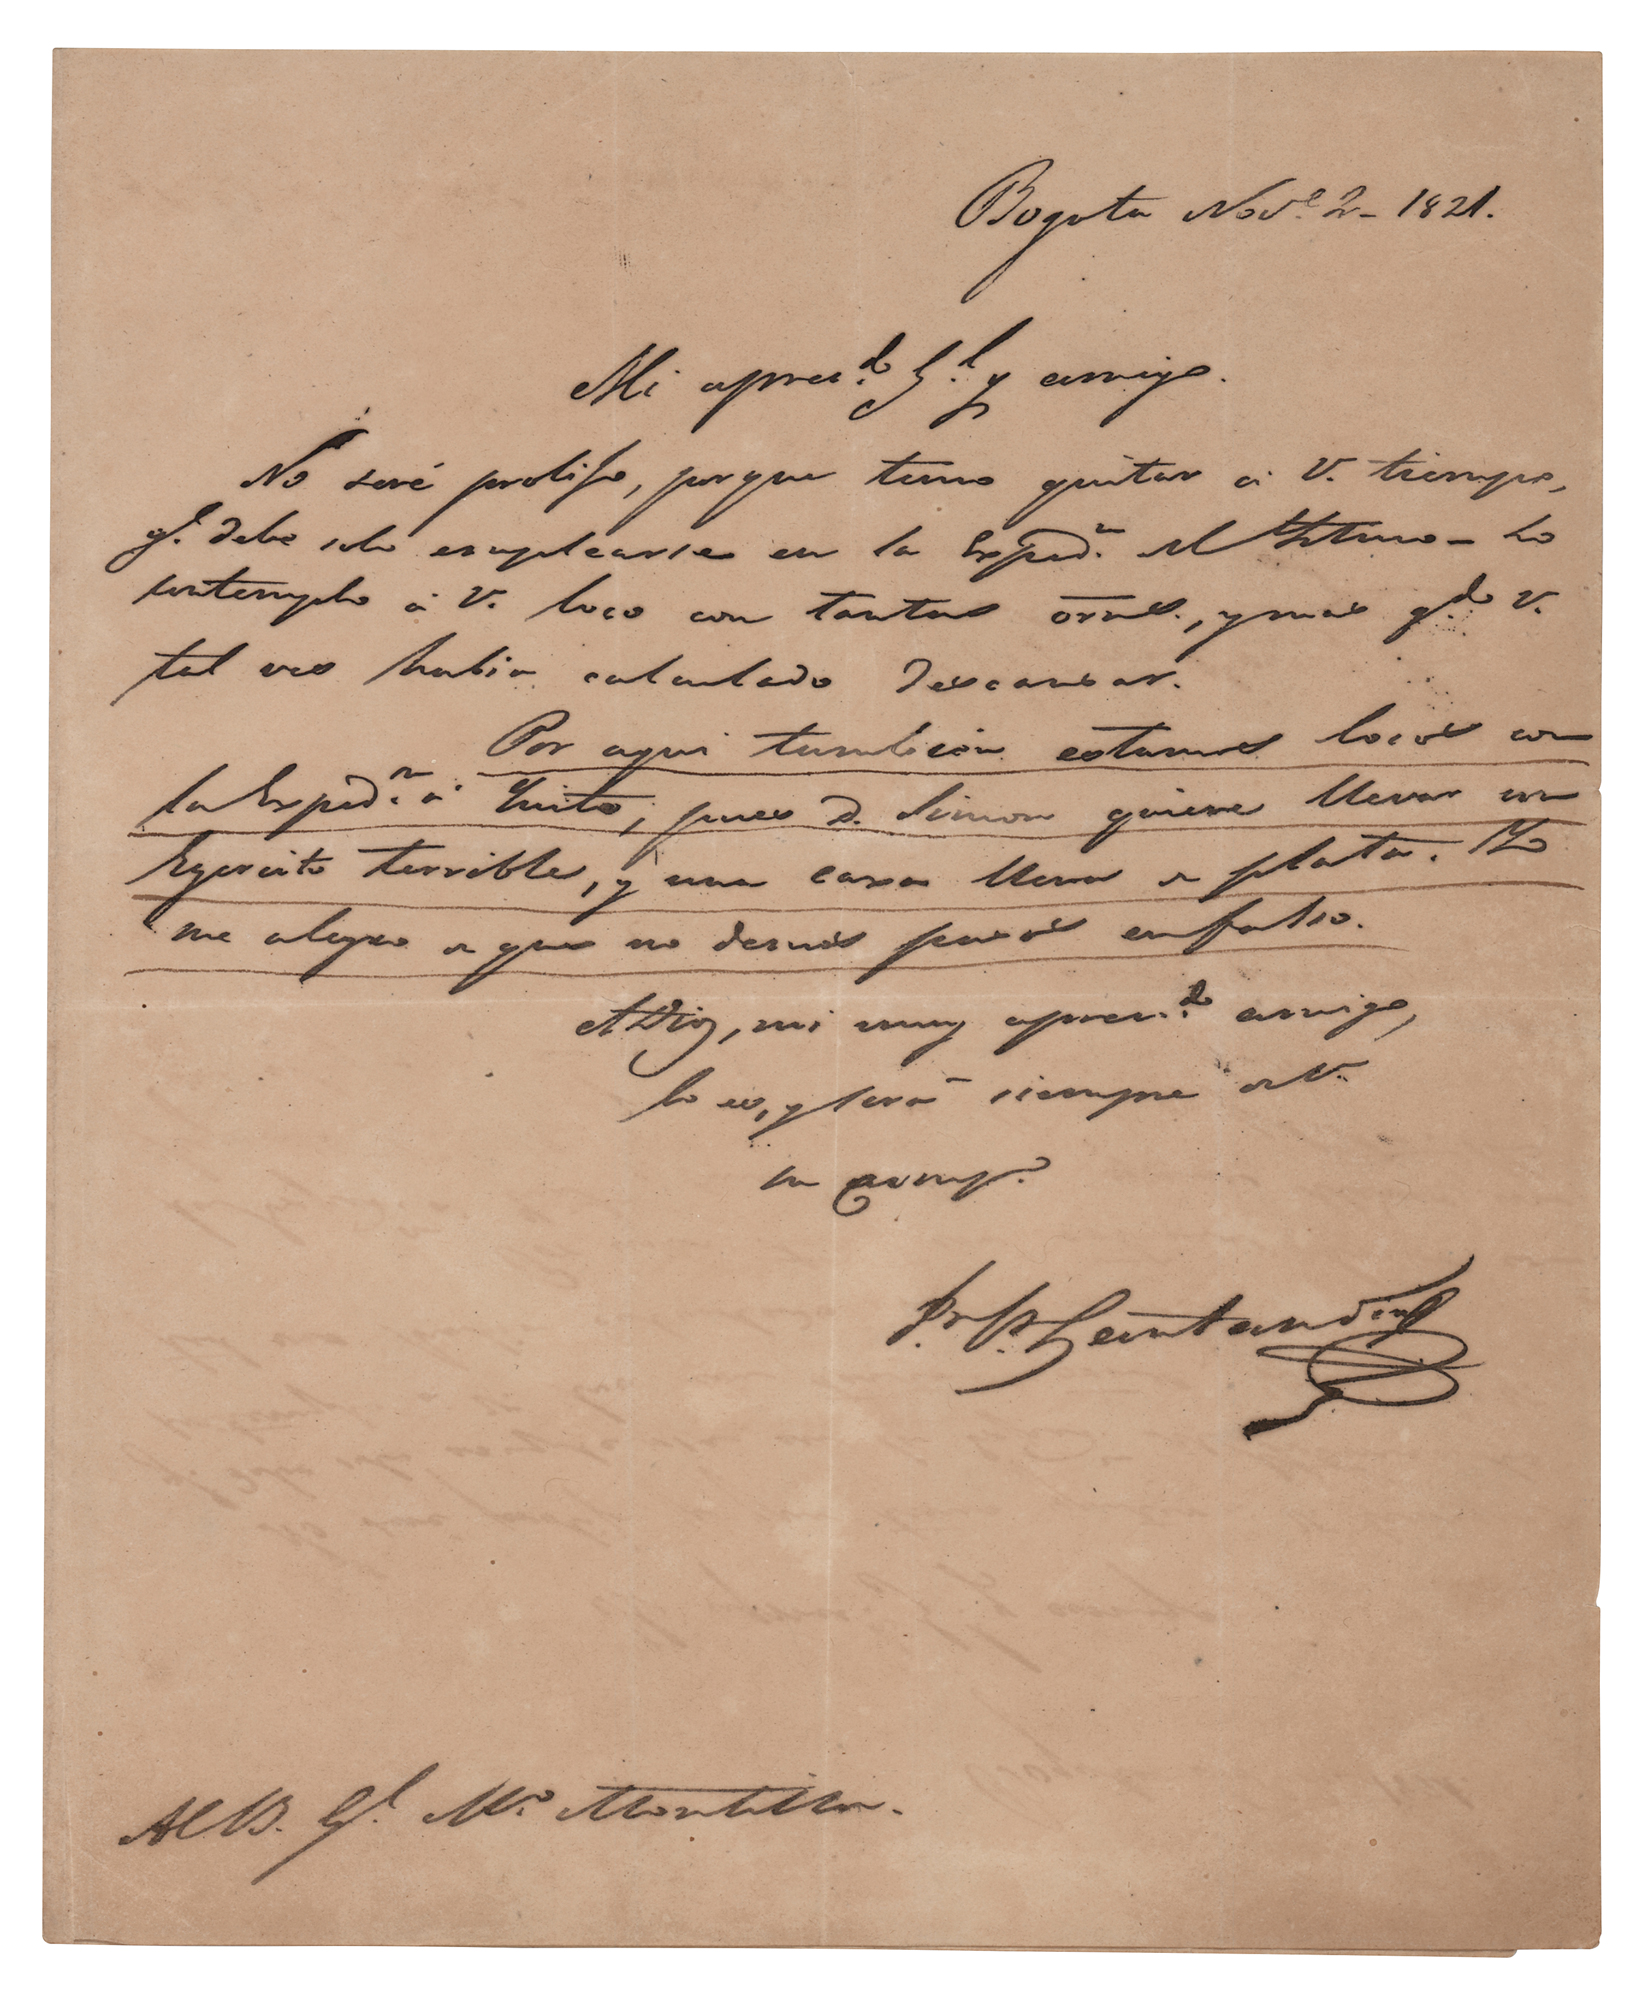 Bogota Nov.e 2- 1821.
Mi aprec.do G.l y amigo.
No seré prolijo, porque temo quitar á V. tiempo,
q.e debe solo emplearse en la Exped.n del Istmo- Lo
contemplo á V. loco con tantas orns., y mas q.do V.
tal ves habia calculado descansar.
Por aqui tambien estamos locos con
la Exped.n á Quito, pues D. Simon quiere llevar un
Egercito terrible, y una caxa llena de plata. Yo
me alegro de que no demos pasos en falso.
A Dios, mi muy aprec.do amigo,
lo es, y será siempre de V.
su comp.o
F. P. Santander
Al B. G.l M.o Montilla.